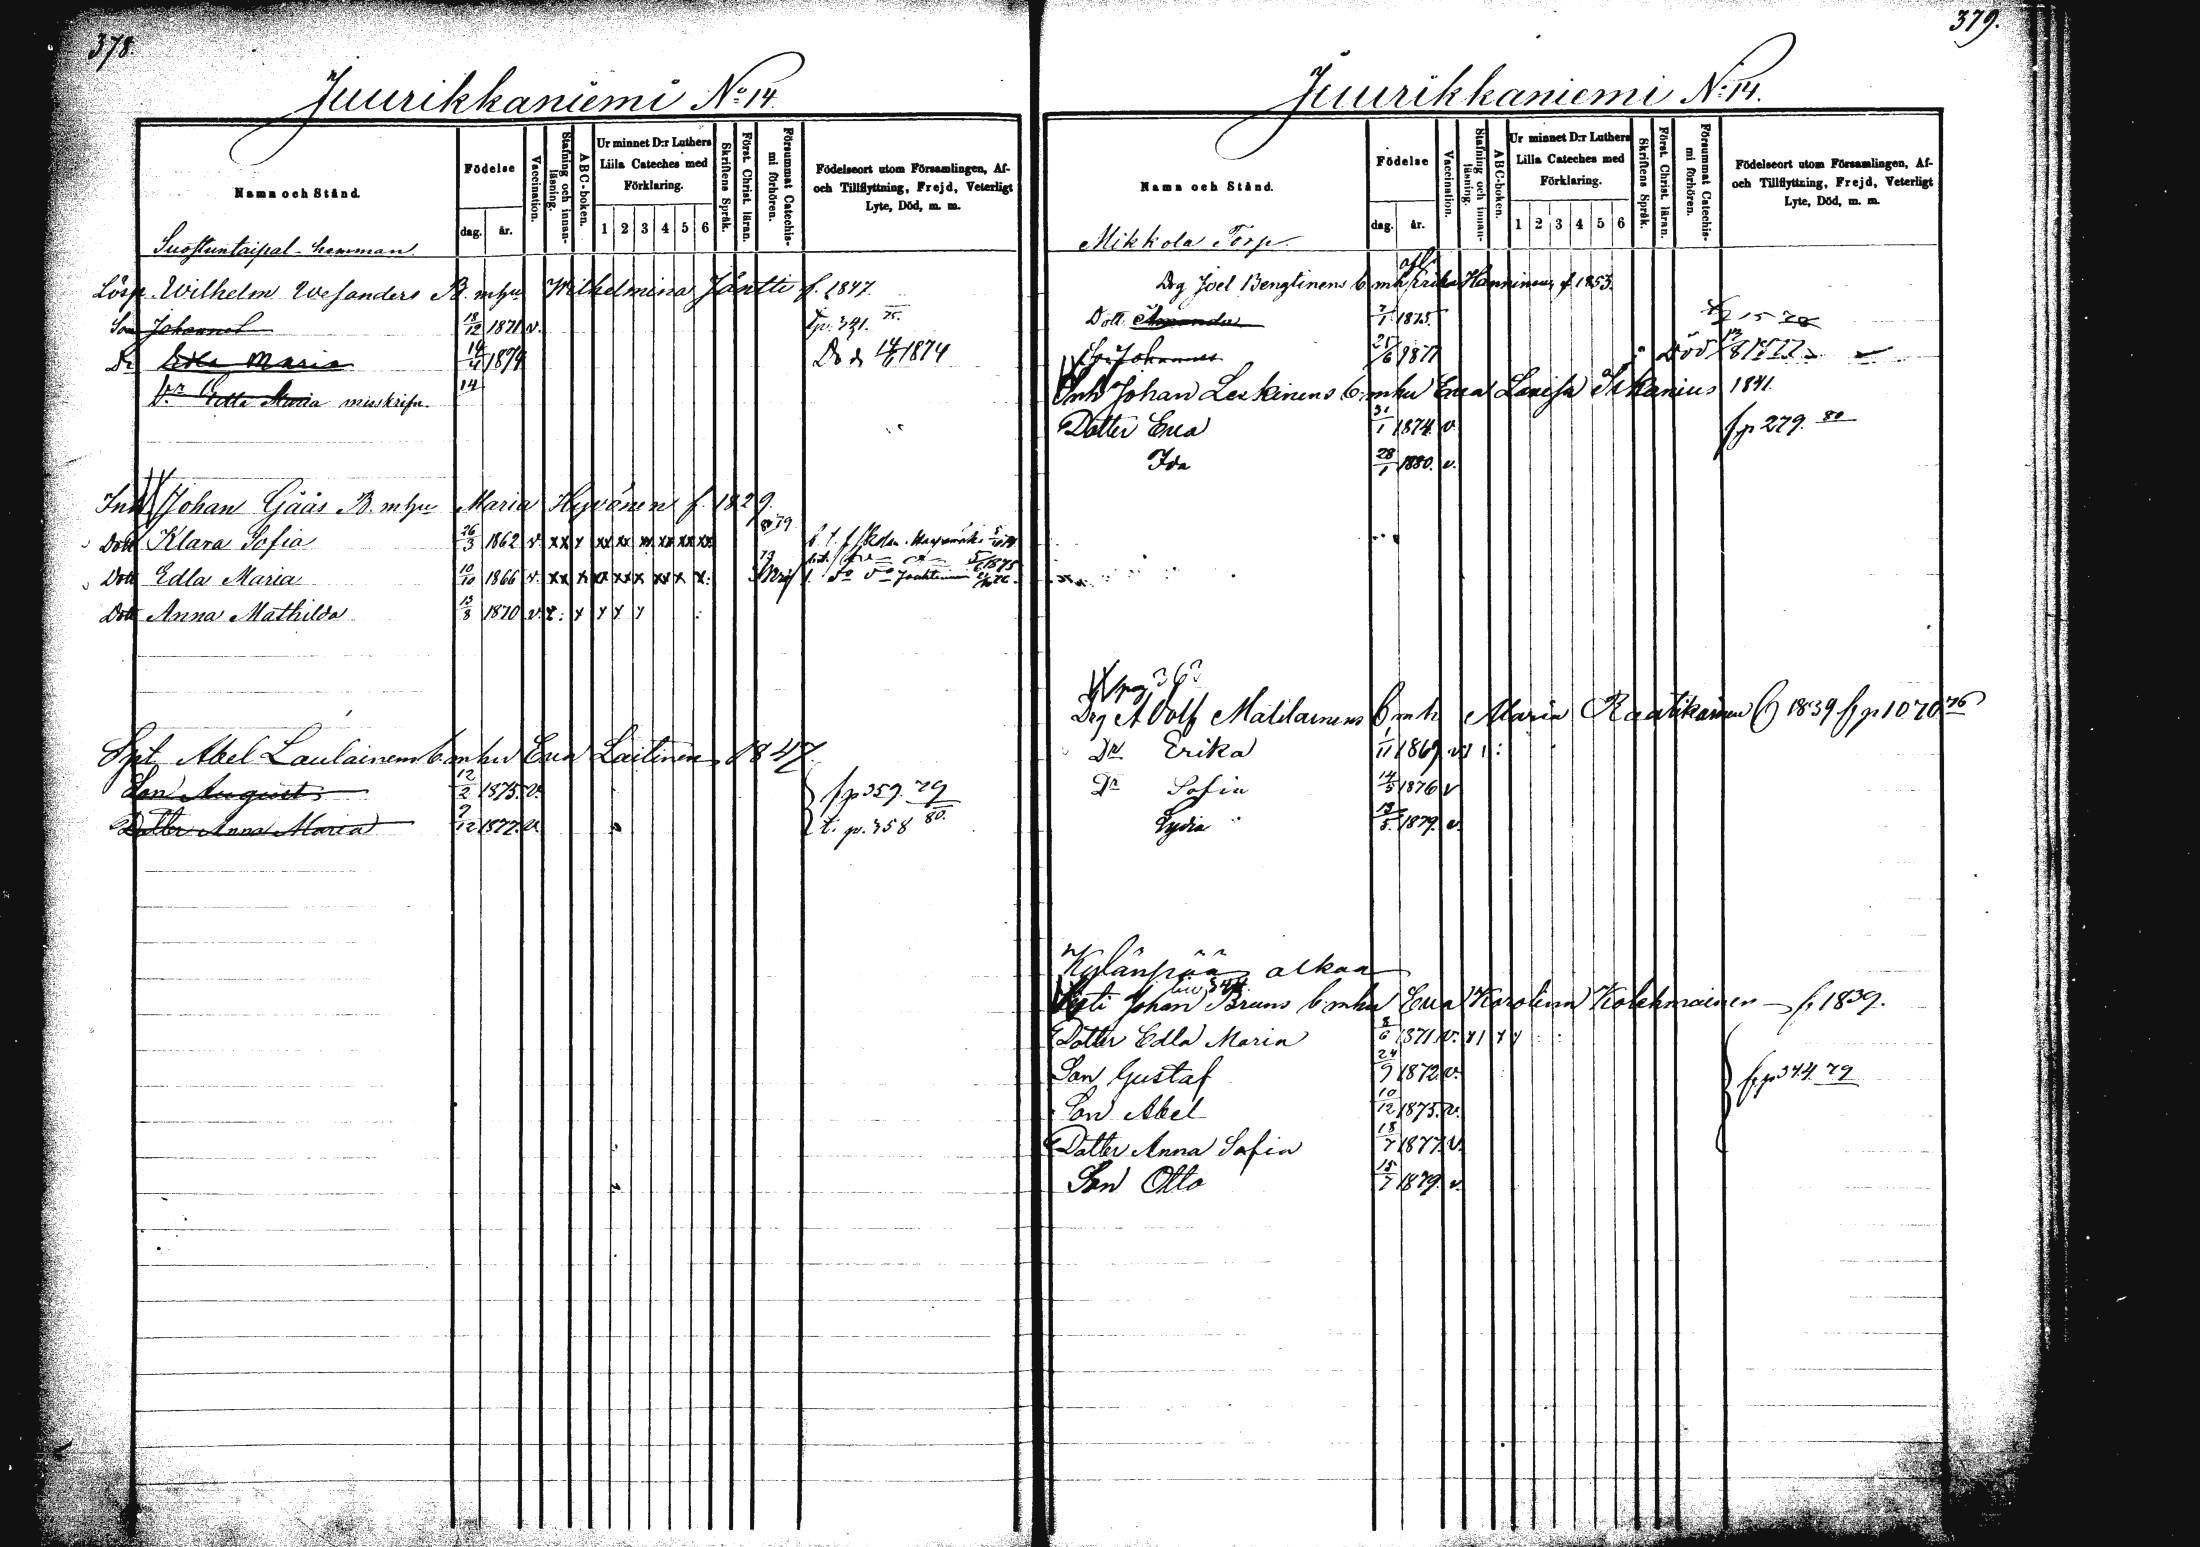 378.
Juurikkaniemi No 14.
Namn och Stånd.
Födelse
dag. år.
Vaccination.
Stafning och innanläsning.
ABC-boken.
Ur minnet D:r Luthers Lilla Cateches med Förklaring.
1 2 3 4 5 6
Skriftens Språk.
Först. Christ. läran.
Försummat Catechismi förhören.
Födelseort utom Församlingen, Af- och Tillflyttning, Frejd, Veterligt Lyte, Död, m. m.
hemman
Lösp. Wilhelm Wesanders B. mhu Wilhelmina Jäntti f. 1847.
Son Johannes 18/12 1871 v. tp. 341. 75.
Dr Edla Maria 14/4 1874 Död 14/6 1874
Dr Edla Maria misskrifn. 14
Inh Johan Gåås B. mhu Maria Hyvönen f. 1829.
Dott Klara Sofia 26/3 1862 v xx x xx xx xx xx xx xx
Dott Edla Maria 10/10 1866 v. xx x
Dott Anna Mathilda 13/3 1870 v.
Spt Abel Laulainens b. mhu Eva Laitinen 1847.
Son August 12/2 1875. v. fp 359. 79
Datter Anna Maria 9/12 1877. v. t. p. 358 80.
379.
Juurikkaniemi No 14.
Namn och Stånd.
Födelse
dag. år.
Vaccination.
Stafning och innanläsning.
ABC-boken.
Ur minnet D:r Luthers Lilla Cateches med Förklaring.
1 2 3 4 5 6
Skriftens Språk.
Först. Christ. läran.
Försummat Catechismi förhören.
Födelseort utom Församlingen, Af- och Tillflyttning, Frejd, Veterligt Lyte, Död, m. m.
Mikkola Torp.
Drg Joel Bengtinens b. mh Erika Hänninen f. 1853.
Dott. Amanda 7/1 1875.
Son Johannes 25/6 1877 Död
Inh Johan Leskinens b. mhu Eva Lovisa 1841.
Dotter Eva 31/1 1874. v. fp 279. 80
Ida 28/1 1880. v.
Drg Adolf Matilainens b mh Maria Raatikainen f 1839 fp 1070 76
Dr Erika 1/11 1869 v
Dr Sofia 14/5 1876 v
Lydia 13/5. 1879. v.
Kylänpää alkaa
Johan Bruns b. mhu Eva Karolina Kolehmainen f. 1839.
Dotter Edla Maria 8/6 1871. v.
Son Gustaf 24/9 1872. v. fp 344. 79
Son Abel 10/12 1875. v.
Datter Anna Sofia 18/7 1877. v.
Son Otto 15/7 1879. v.